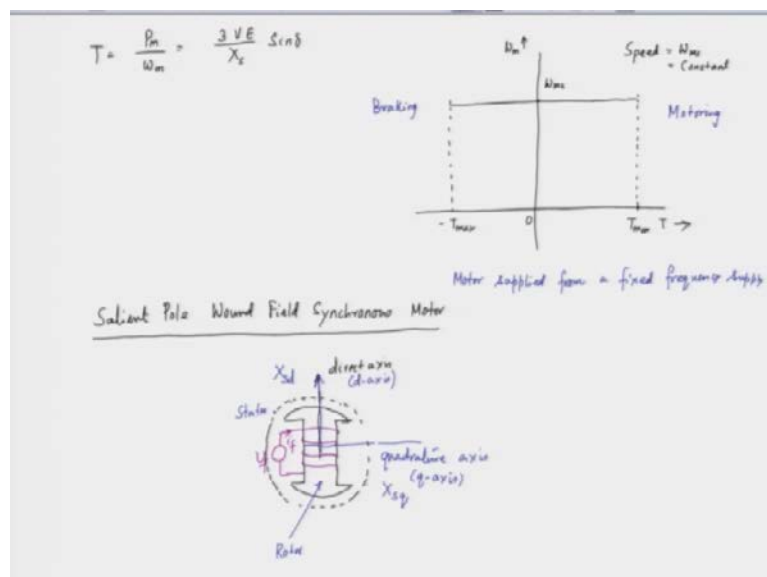 T = Pm / ωm = 3 V E / Xs Sin δ
ωm ↑
Speed = ωms
= Constant
ωms
Braking
Motoring
- Tmax
0
Tmax T →
Motor supplied from a fixed frequency supply
Salient Pole Wound Field Synchronous Motor
Xsd
direct axis
(d-axis)
Stator
if
quadrature axis
(q-axis)
Xsq
Rotor